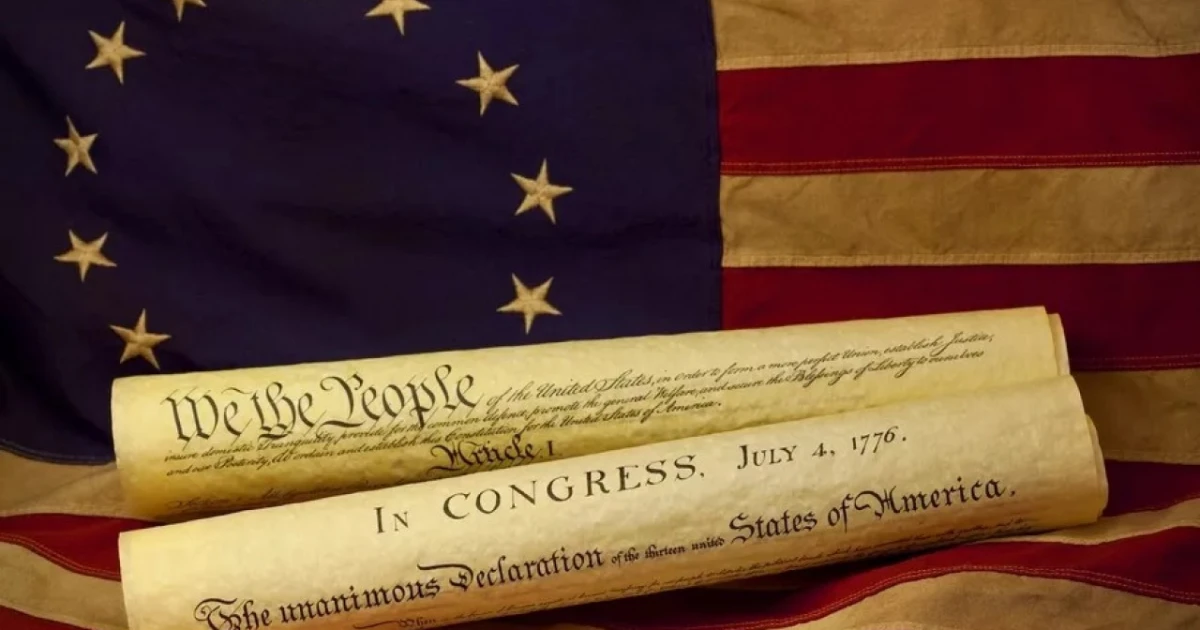 We the People of the United States, in order to form a more perfect Union, establish Justice,
insure domestic Tranquility, provide for the common defence, promote the general Welfare, and secure the Blessings of Liberty to ourselves
and our Posterity, do ordain and establish this Constitution for the United States of America.
Article I
IN CONGRESS, JULY 4, 1776.
The unanimous Declaration of the thirteen united States of America,
When